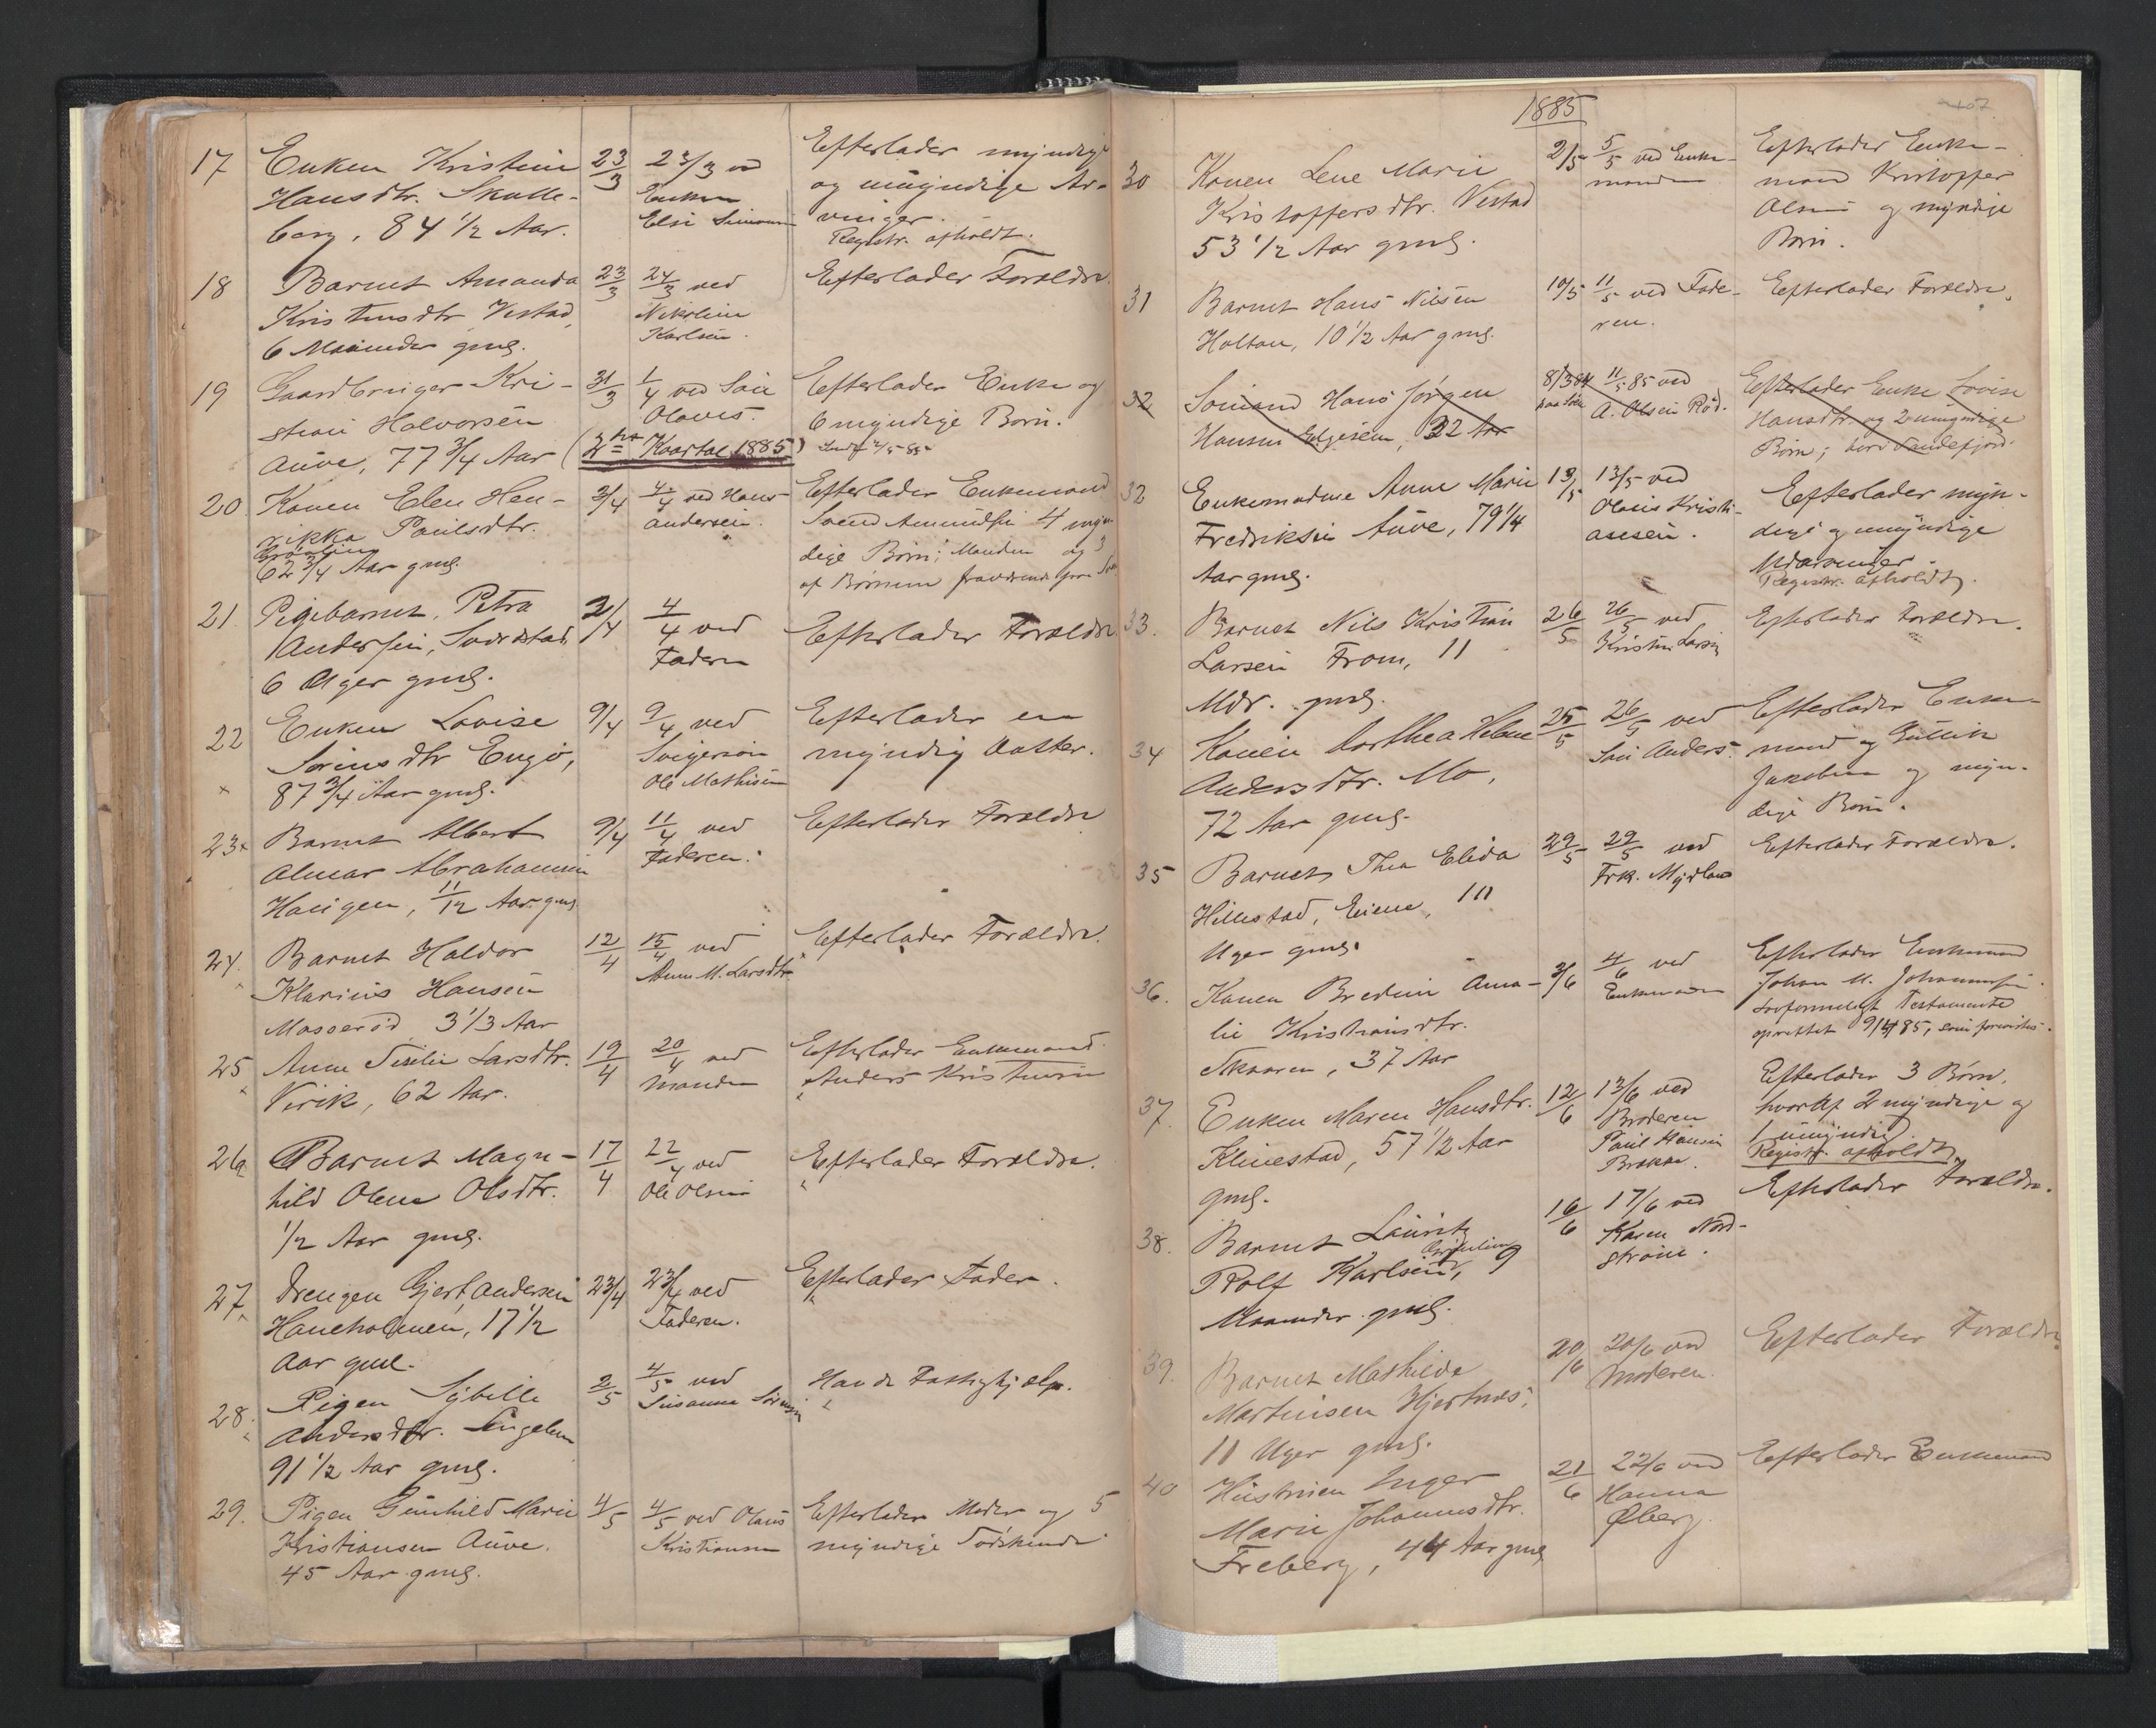 17 Enken Kristine 23/3 23/3 ved Efterlader myndige
Hansdtr. Skalle- Enken og umyndige Ar-
berg, 84 1/2 Aar. Else Simonsen vinger.
Registr. afholdt.
18 Barnet Amanda 23/3 24/3 ved Efterlader Forældre.
Kristensdtr Vestad, Nikoline
6 Maaneder gml. Karlsen.
19 Gaardbruger Kri- 31/3 1/4 ved Søn Efterlader Enke og
stian Halvorsen Olaves. 6 myndige Børn.
Auve, 77 3/4 Aar (2det Kvartal 1885)
20 Konen Elen Hen- 3/4 4/4 ved Hans Efterlader Enkemand
rikka Paulsdtr. Andersen. Svend Amundsen 4 myn-
62 3/4 Aar gml. dige Børn; Manden og 3
af Børnene fraværende
21 Pigebarnet, Petra 2/4 4/4 ved Efterlader Forældre
Andersen, Sverdstad, Faderen
6 Uger gml.
22 Enken Lovise 9/4 9/4 ved Efterlader en
Sørensdtr Engø, Svigersøn myndig Datter.
87 3/4 Aar gml. Ole Mathisen
23 Barnet Albert 9/4 11/4 ved Efterlader Forældre
Almar Abrahamsen Faderen.
Haugen, 11/12 Aar gml.
24. Barnet Haldor 12/4 15/4 ved Efterlader Forældre.
Klarius Hansen Anne M. Larsdtr.
Mosserød 3 1/3 Aar
25 Anne Siselie Larsdtr. 19/4 20/4 ved Efterlader Enkemand
Virik, 62 Aar. Manden Anders Kristensen
26 Barnet Magn- 17/4 22/4 ved Efterlader Forældre.
hild Olene Olsdtr. Ole Olsen
1/2 Aar gml.
27 Drengen Gjert Andersen 23/4 23/4 ved Efterlader Fader.
Haneholmen, 17 1/2 Faderen.
Aar gml.
28. Pigen Sybille 2/5 4/5 ved Havde Fattighjælp.
Andersdtr. Susanne Sørensen
91 1/2 Aar gml.
29. Pigen Gunhild Marie 4/5 4/5 ved Olaus Efterlader Moder og 5
Kristiansen Auve. Kristiansen myndige Södskende
45 Aar gml.
1885
107
30 Konen Lene Marie 2/5 5/5 ved Enke- Efterlader Enke-
Kristoffersdtr. Vestad manden mand Kristoffer
53 1/2 Aar gml. Olsen og myndige
Børn.
31 Barnet Hans Nilsen 10/5 11/5 ved Fade- Efterlader Forældre.
Holtan, 10 1/2 Aar gml. ren.
32 Sømand Hans Jørgen 8/3 84 11/5 85 ved Efterlader Enke Lovise
Hansen Helgesen, 32 Aar paa Søen A. Olsen Rød. Hansdtr. og 2 umyndige
Børn; bor i Sandefjord.
32 Enkemadme Anne Marie 13/5 13/5 ved Efterlader myn-
Fredriksen Auve, 79 1/4 Olaus Kristi- dige og umyndige
Aar gml. ansen. Udarvinger.
Registr. afholdt.
33. Barnet Nils Kristian 26/5 26/5 ved Efterlader Forældre.
Larsen From, 11 Kristen Larsen
Mdr. gml.
34 Konen Dorthea Helene 25/5 26/5 ved Efterlader Enke-
Andersdtr. Mo, Søn Anders. mand og Gullik
72 Aar gml. Jakobsen og myn-
dige Børn.
35 Barnet Thea Elida 29/5 29/5 ved Efterlader Forældre.
Hillestad, 10 Frk. Mydland
Uger gml.
36. Konen Bredine Ama- 3/6 4/6 ved Efterlader Enkemand
lie Kristiansdtr. Enkemanden Johan M. Johannessen.
37 Aar Lovformeligt Testamente
oprettet 9/4 85, som forevistes.
37. Enken Maren Hansdtr. 12/6 13/6 ved Efterlader 3 Børn,
Klinestad, 57 1/2 Aar Broderen hvoraf 2 myndige og
gml. Paul Hansen 1 umyndig
Brekke. Registr. afholdt
38. Barnet Lauritz 16/6 17/6 ved Efterlader Forældre.
Rolf Karlsen, 9 Karen Nord-
Maaneder gml. strøm.
39. Barnet Mathilde 20/6 20/6 ved Efterlader Forældre
Martinsen Hjertnæs, Moderen.
11 Uger gml.
40 Hustruen Inger 21/6 22/6 ved Efterlader Enkemand
Marie Johannesdtr. Hanna
Freberg, 44 Aar gml. Øberg.